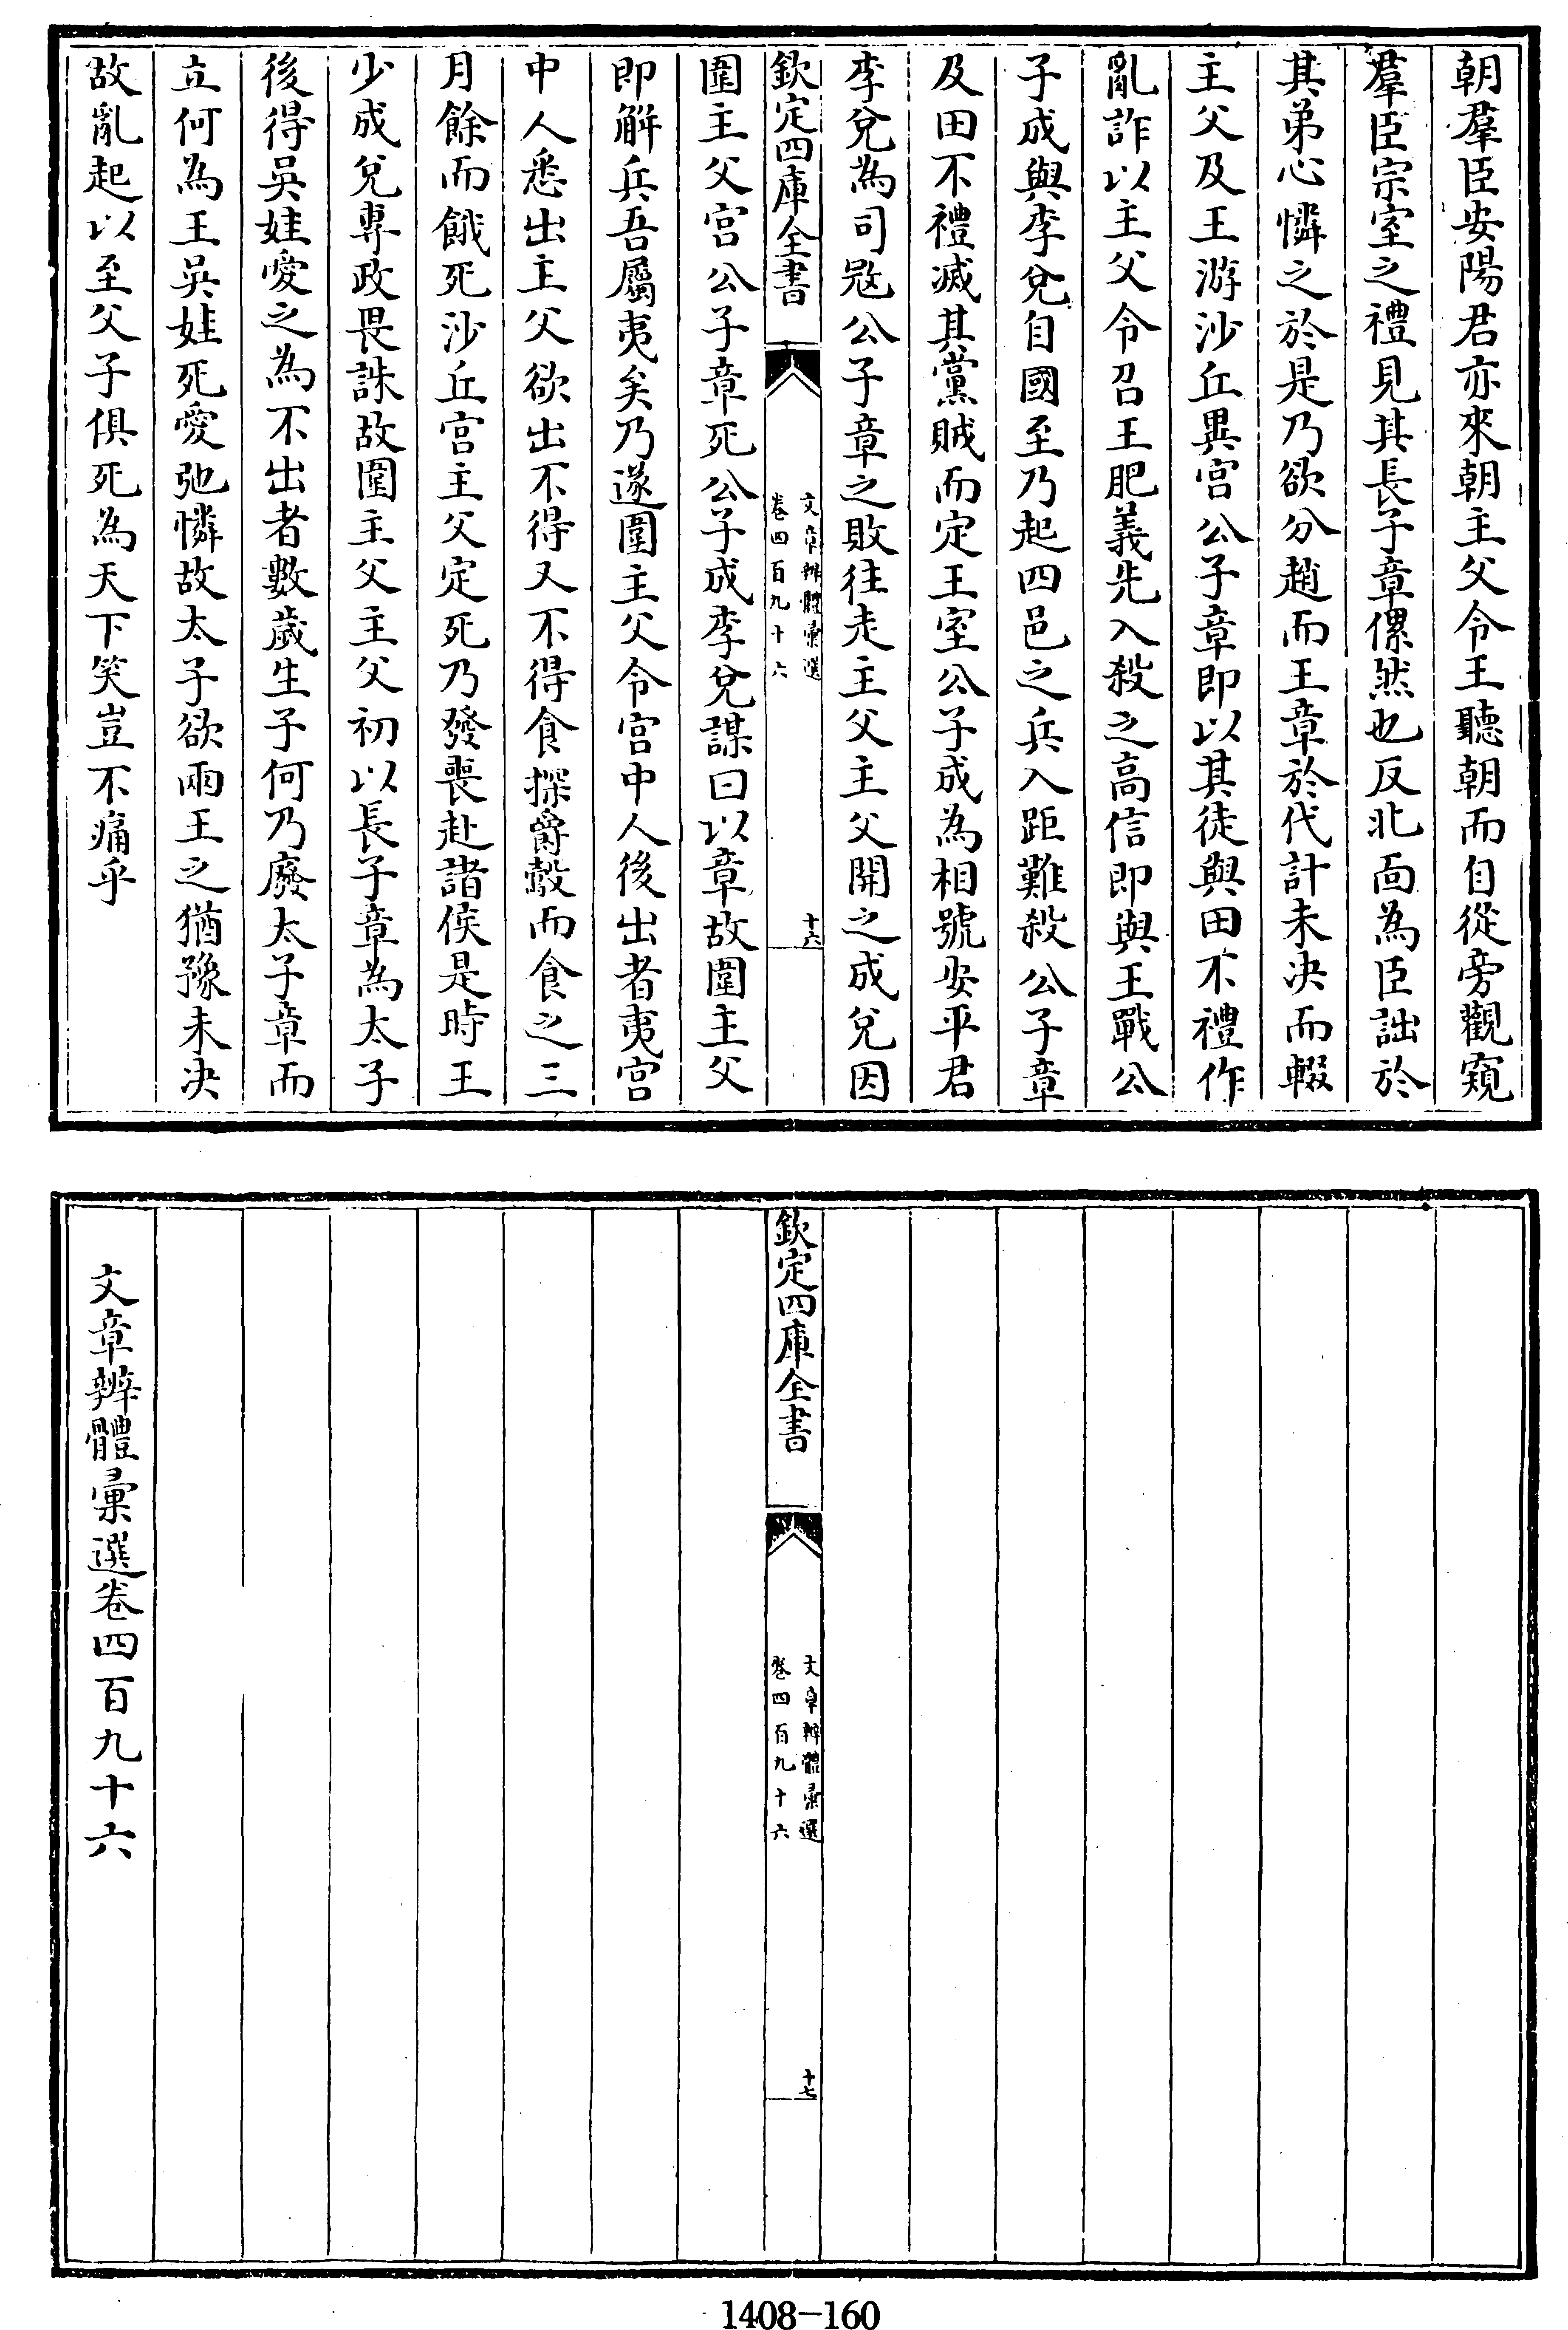 朝羣臣安陽君亦來朝主父令王聽朝而自從旁觀窺
羣臣宗室之禮見其長子章傫然也反北面為臣詘於
其弟心憐之於是乃欲分趙而王章於代計未决而輟
主父及王游沙丘異宮公子章即以其徒與田不禮作
亂詐以主父令召王肥義先入殺之高信即與王戰公
子成與李兌自國至乃起四邑之兵入距難殺公子章
及田不禮滅其黨賊而定王室公子成為相號安平君
李兌為司寇公子章之敗往走主父主父開之成兌因
欽定四庫全書
文章辨體彙選
卷四百九十六
十六
圍主父宮公子章死公子成李兌謀曰以章故圍主父
即解兵吾屬夷矣乃遂圍主父令宮中人後出者夷宮
中人悉出主父欲出不得又不得食探爵鷇而食之三
月餘而餓死沙丘宮主父定死乃發喪赴諸侯是時王
少成兌專政畏誅故圍主父主父初以長子章為太子
後得吳娃愛之為不出者數歲生子何乃廢太子章而
立何為王吳娃死愛弛憐故太子欲兩王之猶豫未决
故亂起以至父子俱死為天下笑豈不痛乎
欽定四庫全書
文章辨體彙選
卷四百九十六
十七
文章辨體彙選卷四百九十六
1408-160